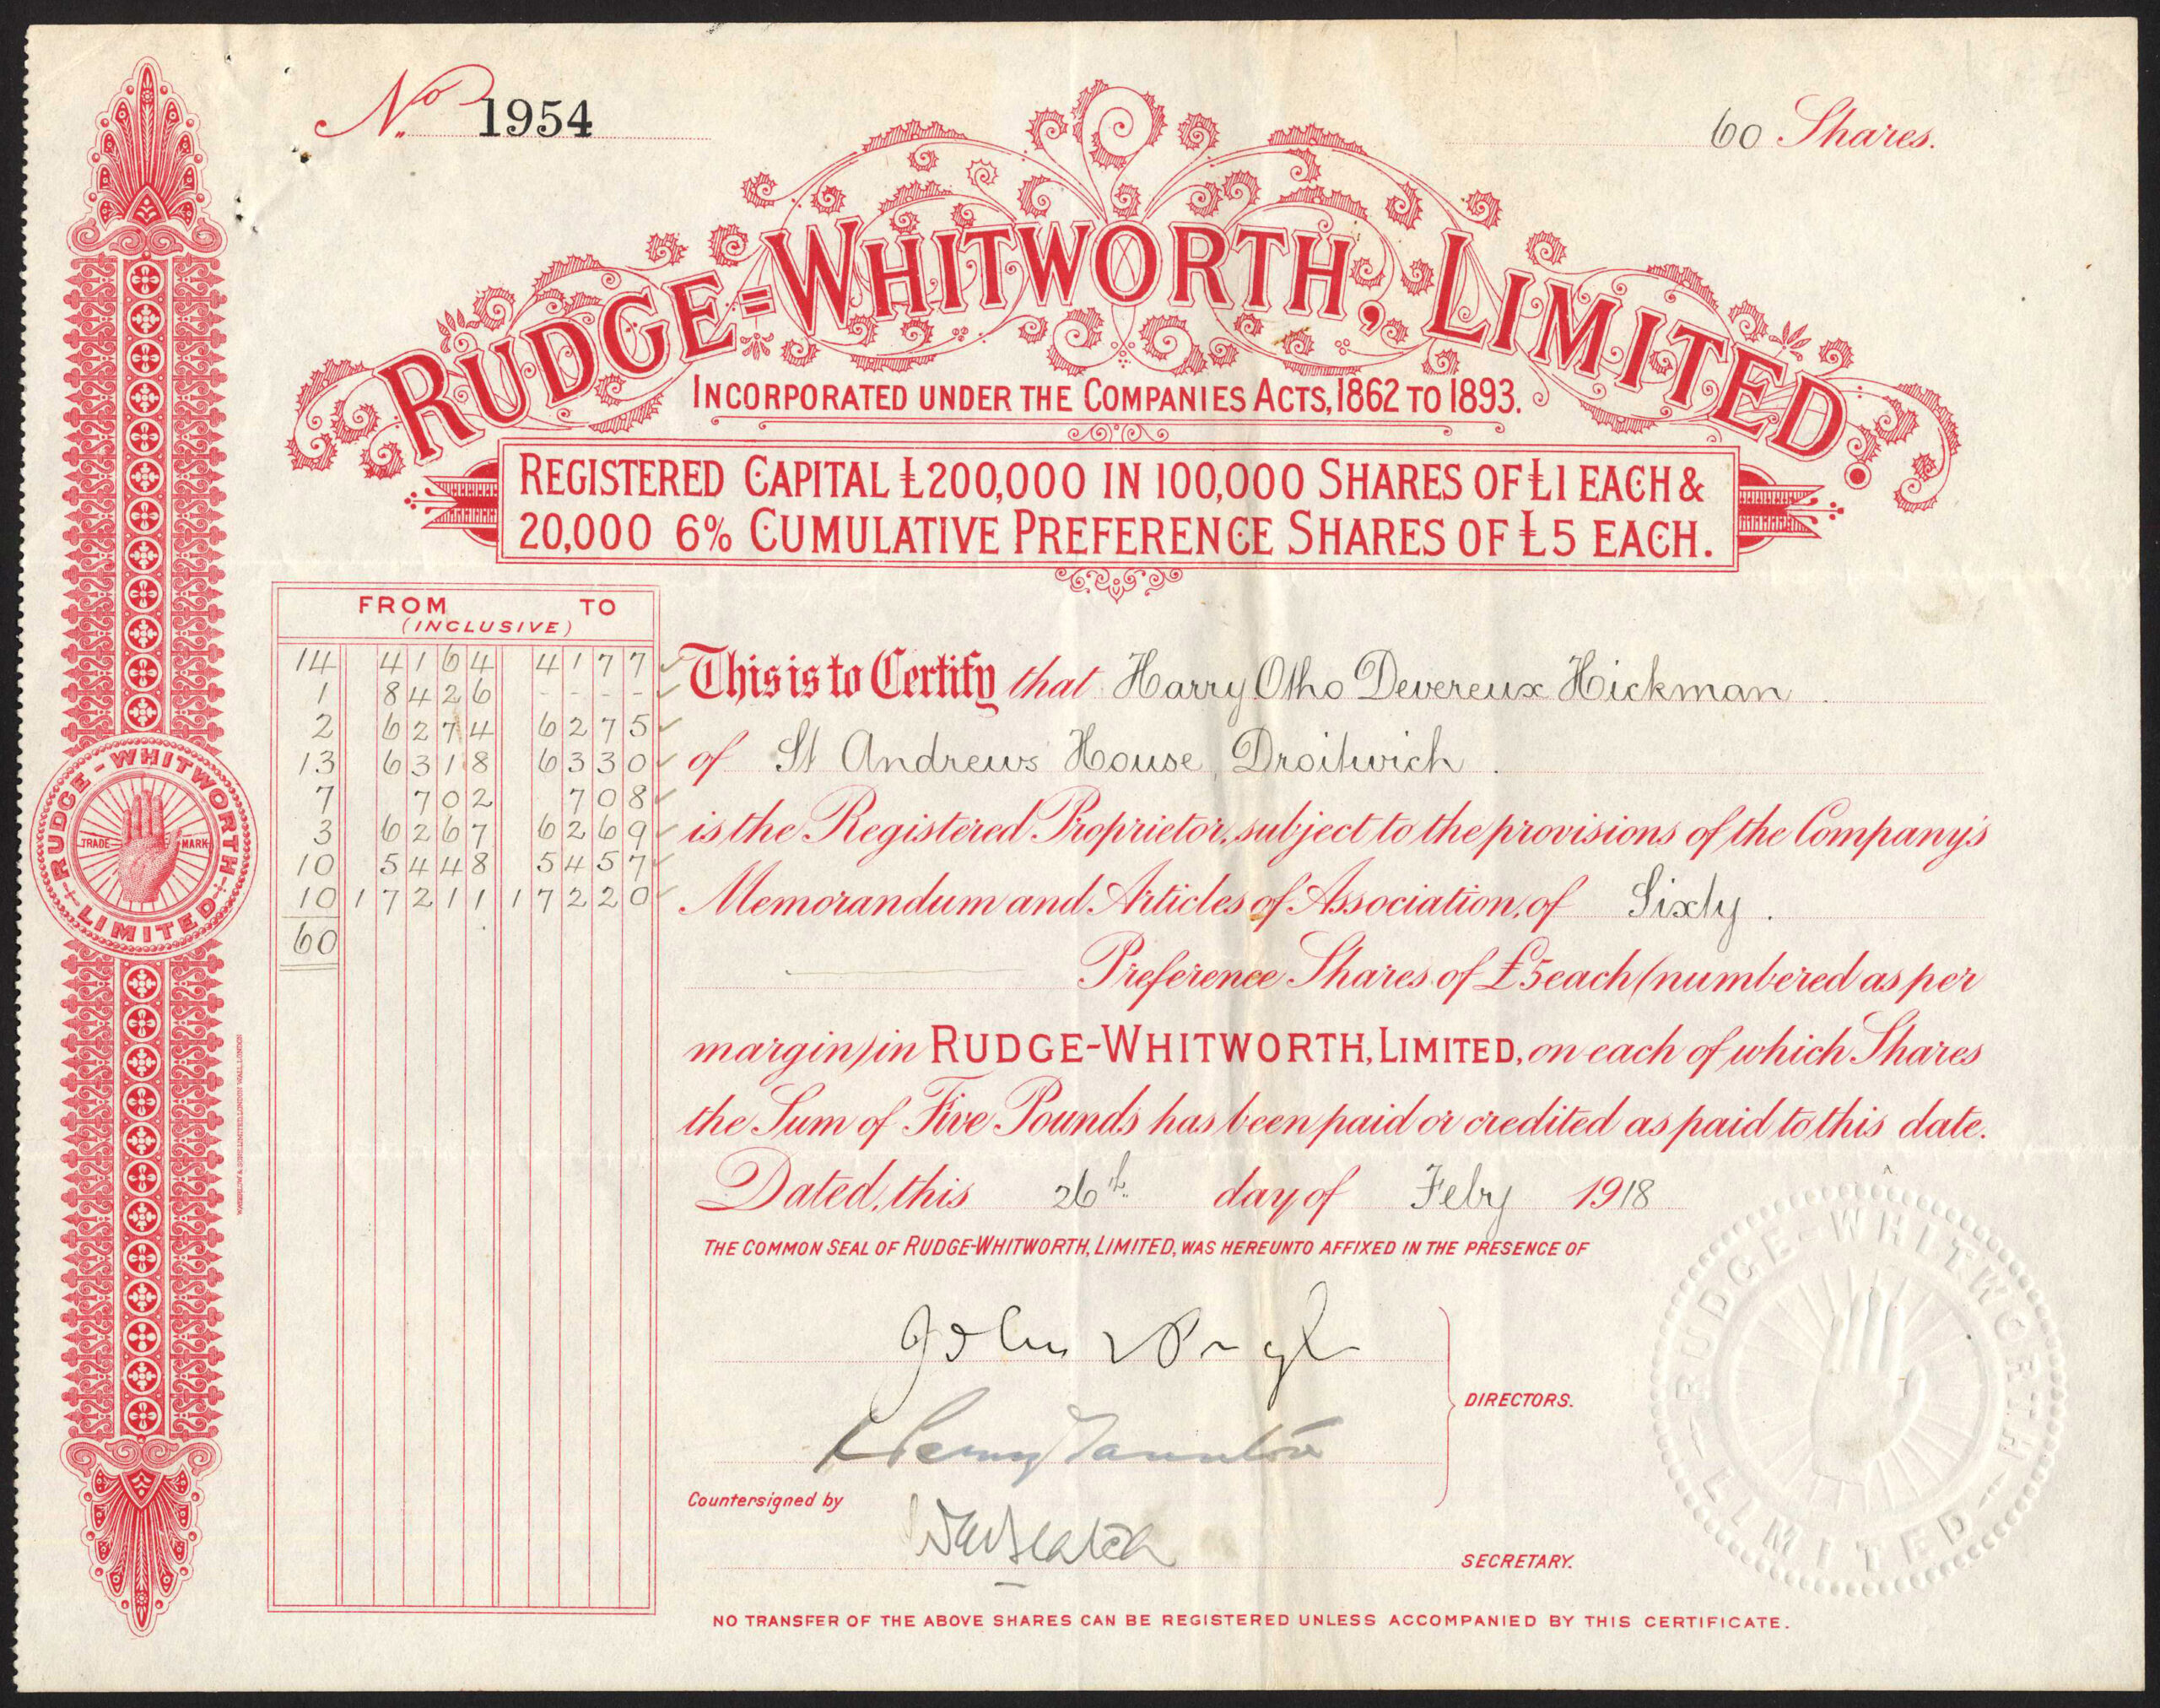 No. 1954
60 Shares.
RUDGE-WHITWORTH, LIMITED.
INCORPORATED UNDER THE COMPANIES ACTS, 1862 TO 1893.
REGISTERED CAPITAL £200,000 IN 100,000 SHARES OF £1 EACH &
20,000 6% CUMULATIVE PREFERENCE SHARES OF £5 EACH.
FROM TO
(INCLUSIVE)
14 4164 4177
1 8426 - - - -
2 6274 6275
13 6318 6330
7 702 708
3 6267 6269
10 5448 5457
10 17211 17220
60
This is to Certify that Harry Otho Devereux Hickman
of St Andrews House, Droitwich.
is the Registered Proprietor, subject to the provisions of the Company's
Memorandum and Articles of Association, of Sixty.
Preference Shares of £5 each (numbered as per
margin) in RUDGE-WHITWORTH, LIMITED, on each of which Shares
the Sum of Five Pounds has been paid or credited as paid to this date.
Dated, this 26th day of Feby 1918
THE COMMON SEAL OF RUDGE-WHITWORTH, LIMITED, WAS HEREUNTO AFFIXED IN THE PRESENCE OF
John
DIRECTORS.
Countersigned by
SECRETARY.
NO TRANSFER OF THE ABOVE SHARES CAN BE REGISTERED UNLESS ACCOMPANIED BY THIS CERTIFICATE.
RUDGE-WHITWORTH LIMITED
TRADE MARK
WATERLOW & SONS LIMITED, LONDON WALL, LONDON
RUDGE-WHITWORTH LIMITED